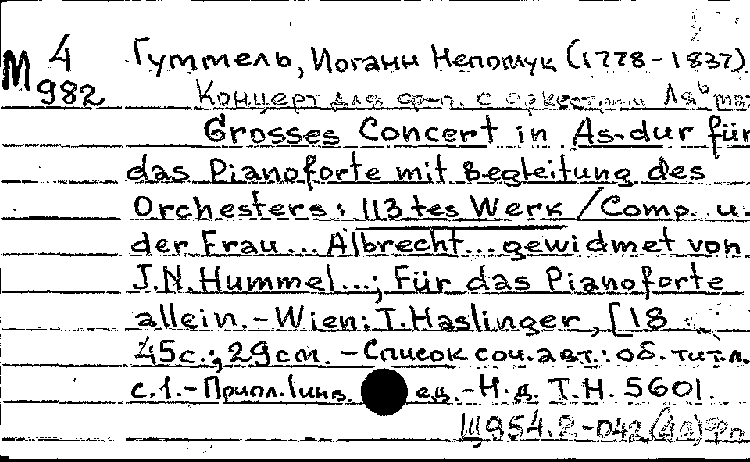 М 4 Гуммель, Иоганн Непомук (1778-1837)
982 Концерт для ф-п. с оркестром Ля♭
Grosses Concert in As-dur für
das Pianoforte mit Begleitung des
Orchesters: 113tes Werk / Comp. u.
der Frau... Albrecht... gewidmet von
J.N. Hummel...; Für das Pianoforte
allein. - Wien: T. Haslinger, [18
45с.; 29cm. - Список соч. авт.: об. тит. л.
с.1. - Прилл. 1 инв. ед. - Н.д. T.H. 5601.
Щ954.2-042